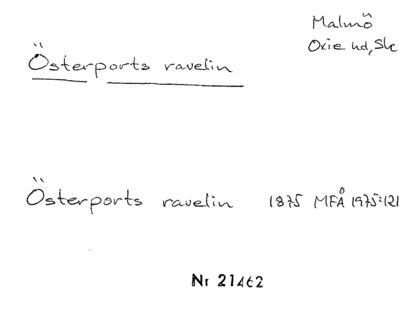 Malmö
Oxie hd, Sk
Österports ravelin
Österports ravelin 1875 MFÅ 1975:121
Nr 21462